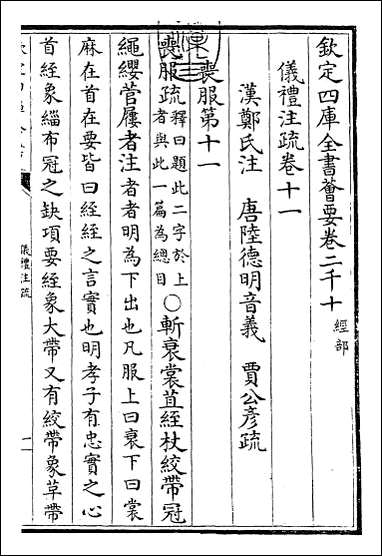 欽定四庫全書薈要卷二千十 經部
儀禮注疏卷十一
漢鄭氏注 唐陸德明音義 賈公彦疏
喪服第十一
喪服疏 釋曰題此二字於上
者與此一篇為總目
○斬衰裳苴絰杖絞帶冠
繩纓菅屨者注者者明為下出也凡服上曰衰下曰裳
麻在首在要皆曰絰絰之言實也明孝子有忠實之心
首絰象緇布冠之缺項要絰象大帶又有絞帶象草帶
儀禮注疏
一